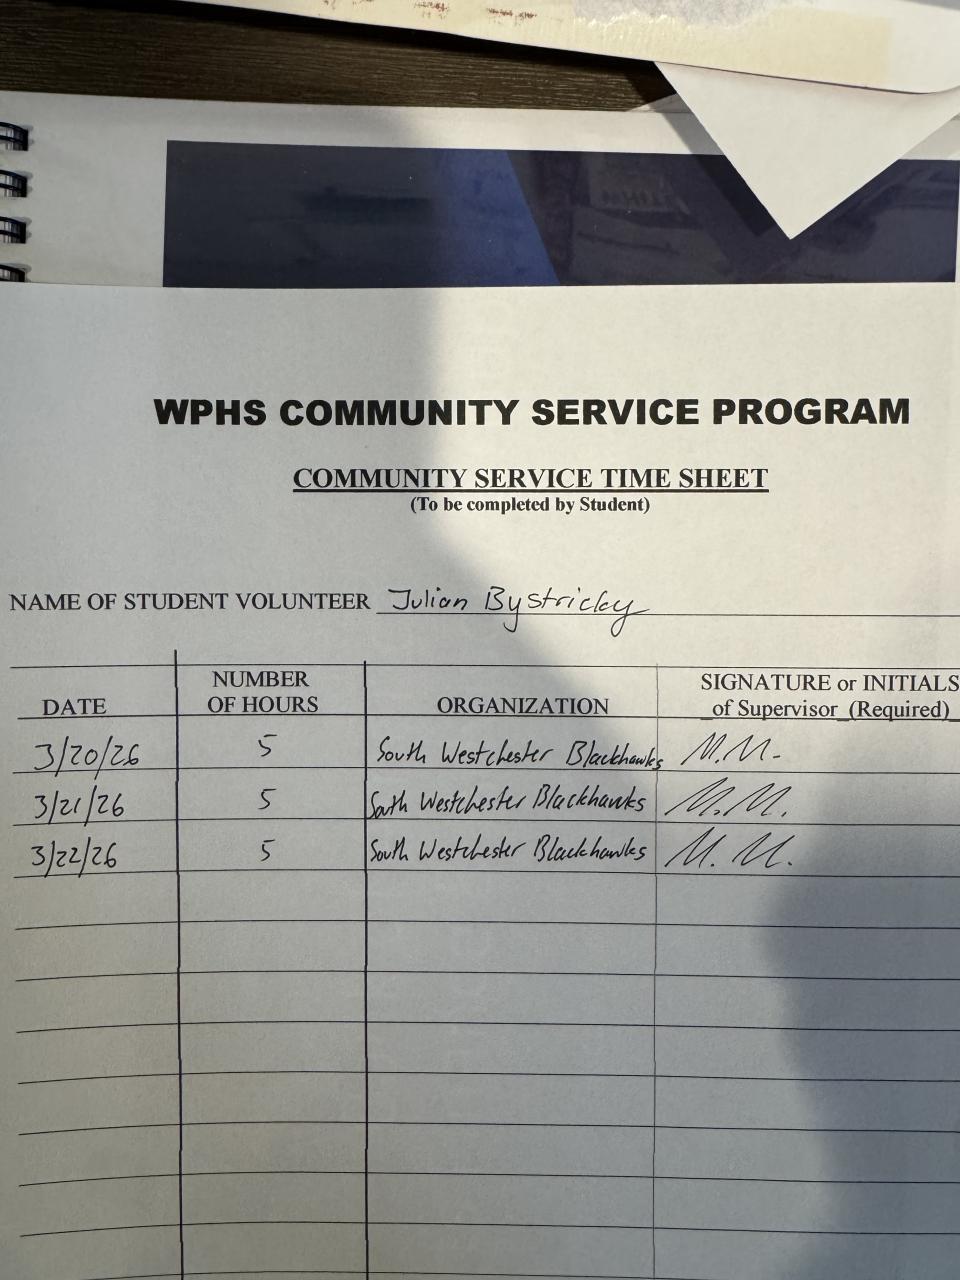 WPHS COMMUNITY SERVICE PROGRAM
COMMUNITY SERVICE TIME SHEET
(To be completed by Student)
NAME OF STUDENT VOLUNTEER Julian Bystricky
DATE NUMBER OF HOURS ORGANIZATION SIGNATURE or INITIALS of Supervisor (Required)
3/20/26 5 South Westchester Blackhawks M.M.
3/21/26 5 South Westchester Blackhawks M.M.
3/22/26 5 South Westchester Blackhawks M.M.